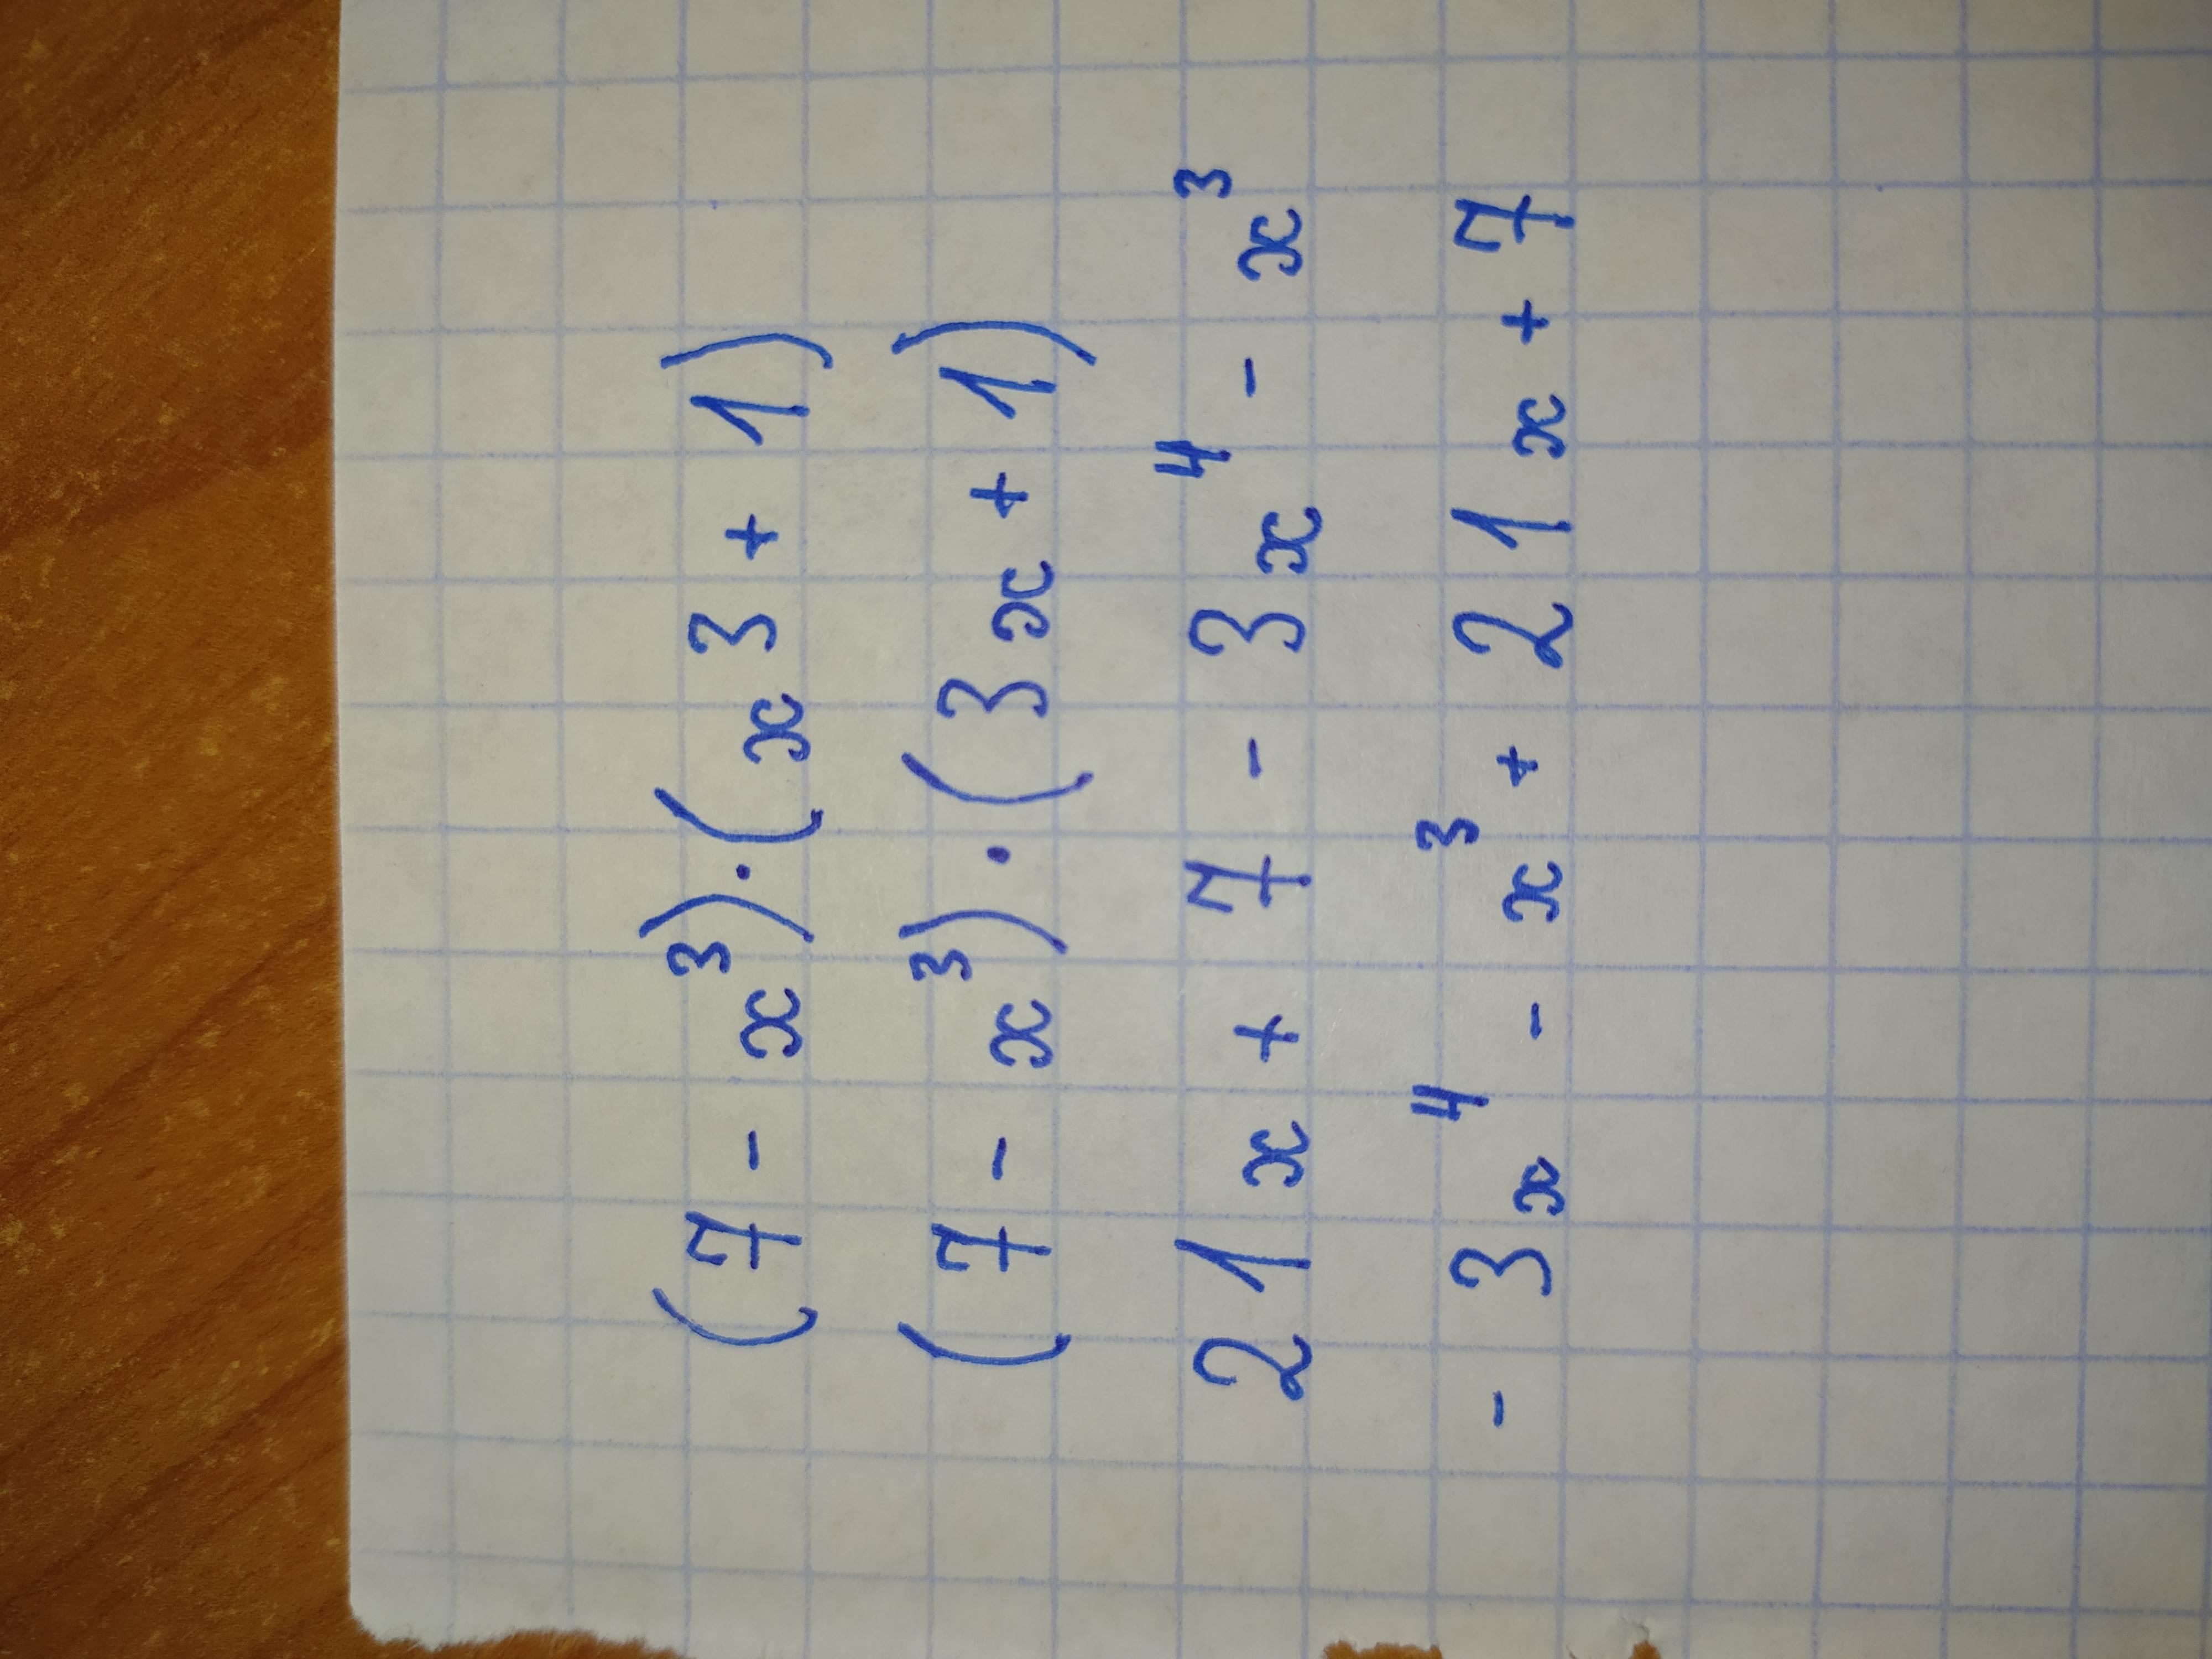 (7 - x³) · (x3 + 1)
(7 - x³) · (3x + 1)
21x + 7 - 3x⁴ - x³
- 3x⁴ - x³ + 21x + 7